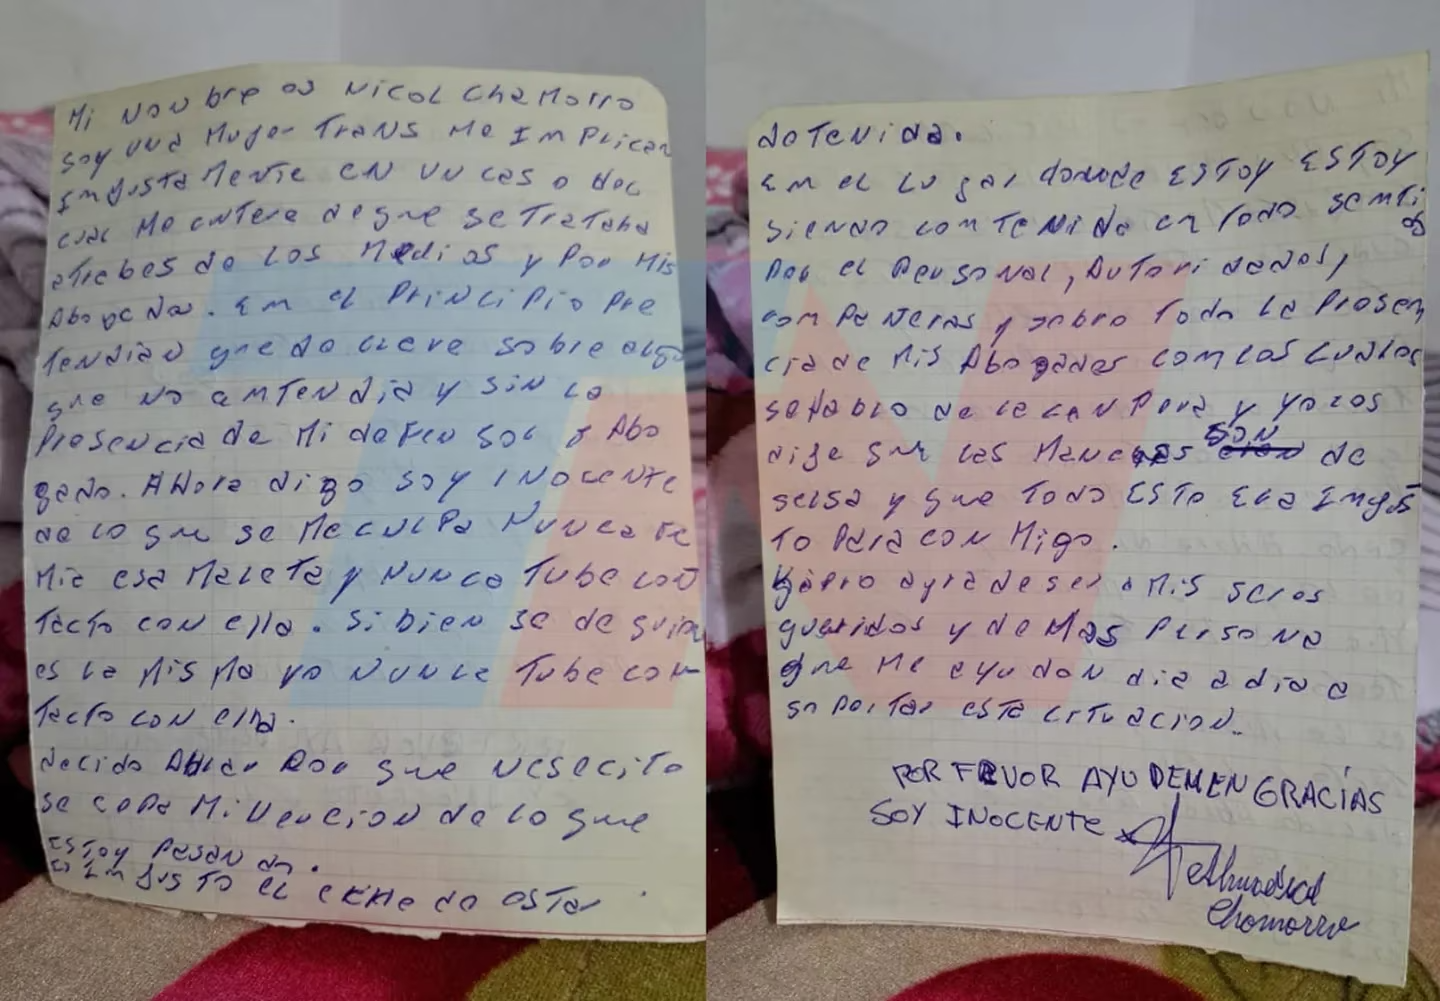 Mi NOMbre es Nicol CHAMorro
soy una Mujer TRANS Me IMPlican
INJUSTAMENTE EN UN caso del
cual Me entere de que se TraTaba
atrabes de los Medios y Por Mis
Abogados. Em el PRINCIPIO Pre
Tendian que declare sobre algo
que NO amTendia y siN la
Presencia de Mi defensor y Abo
gado. AHora digo soy INOcente
de lo que se Me culpa NUNca Fe
Mia esa MaleTa y NUNca Tube con
TacTo con ella. Si bien se de quien
es la MisMa yo NUNca Tube con
TacTo con ella.
decido Por que Nesecito
se sepa Mi Vercion de lo que
ESTOY Pasando.
ES IMJUSTO el de esTar
deTenida.
Em el lugar donde ESTOY ESTOY
siendo comTeNida en Todo semTi
do
Por el Personal, AuTori dades,
comPaNeras y sobre Todo la Presen
cia de Mis Abogados com los cuales
se Hablo de la y yo los
dije que las SON de
y que Todo ESTO era Imjus
To Para con Migo.
quiero agradeser a Mis seres
queridos y de Mas Persona
que Me ayudan dia a dia a
soporTar esTa ciTuacion.
POR FAVOR AYUDEMEN GRACIAS
SOY INOCENTE
Chamorro
TN